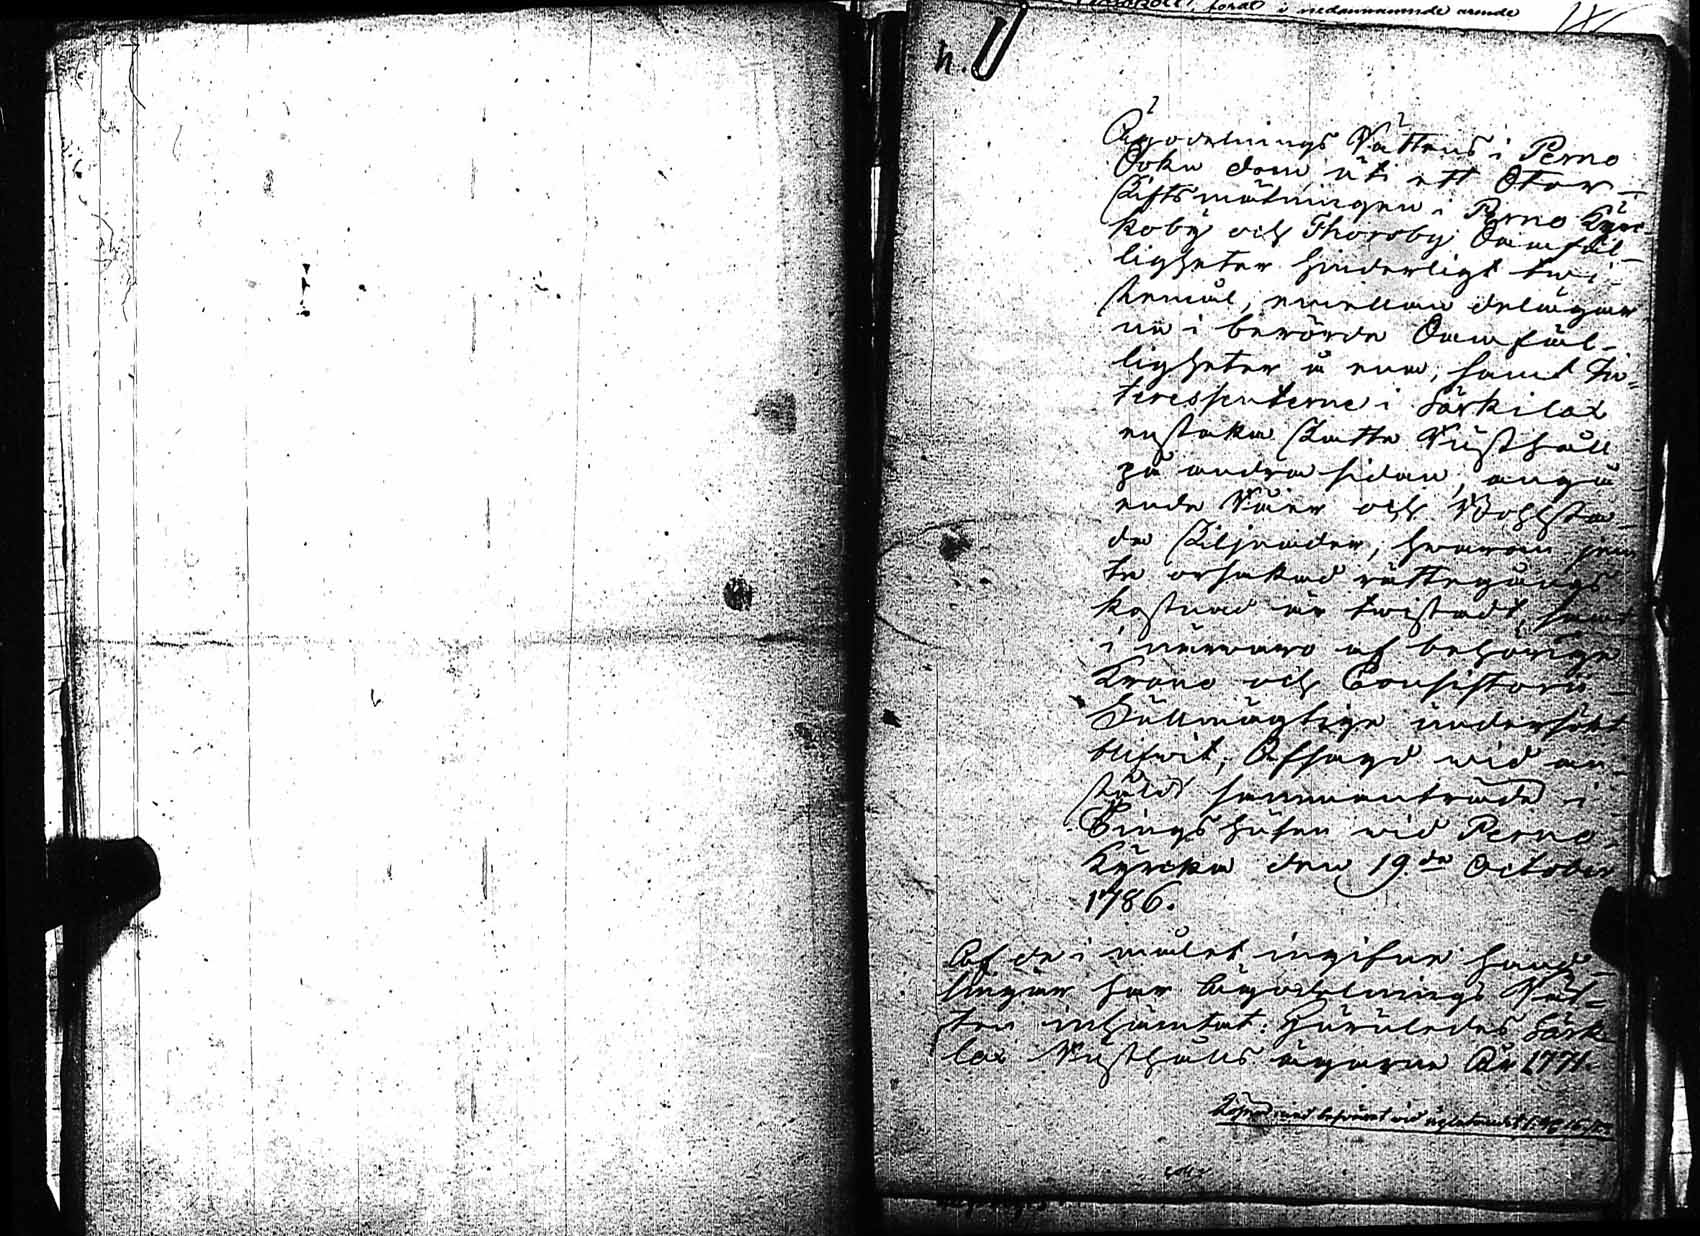 förde i nedannämnde ärende
n. 1
Ägodelnings Rättens i Perno
Sokn dom uti ett Stor-
skiftsmätningen i Perno Kyr-
koby och Thoroby Samfäl-
ligheter hinderligt twi-
stemål, emellan delägar
ne i berörde Samfäl-
ligheter å ena, samt In-
teressenterne i Särkilax
enstaka Skatte Rusthåll
på andra sidan, angå
ende Råer och Bohlsta-
da Skiljnader, hwarom jem
te orsakad rättegångs
kostnad är twistadt, samt
i närwaro af behörige
Krono och Consistorii
Fullmägtige undersökt
blifwit; Afsagd wid an-
stäldt sammanträde i
Tingshusen wid Perno
Kyrcka den 19.de October
1786.
Af de i målet ingifne hand-
lingar har Ägodelnings Rät-
ten inhämtat: Huruledes Särki
lax Rusthålls ägarne År 1771.